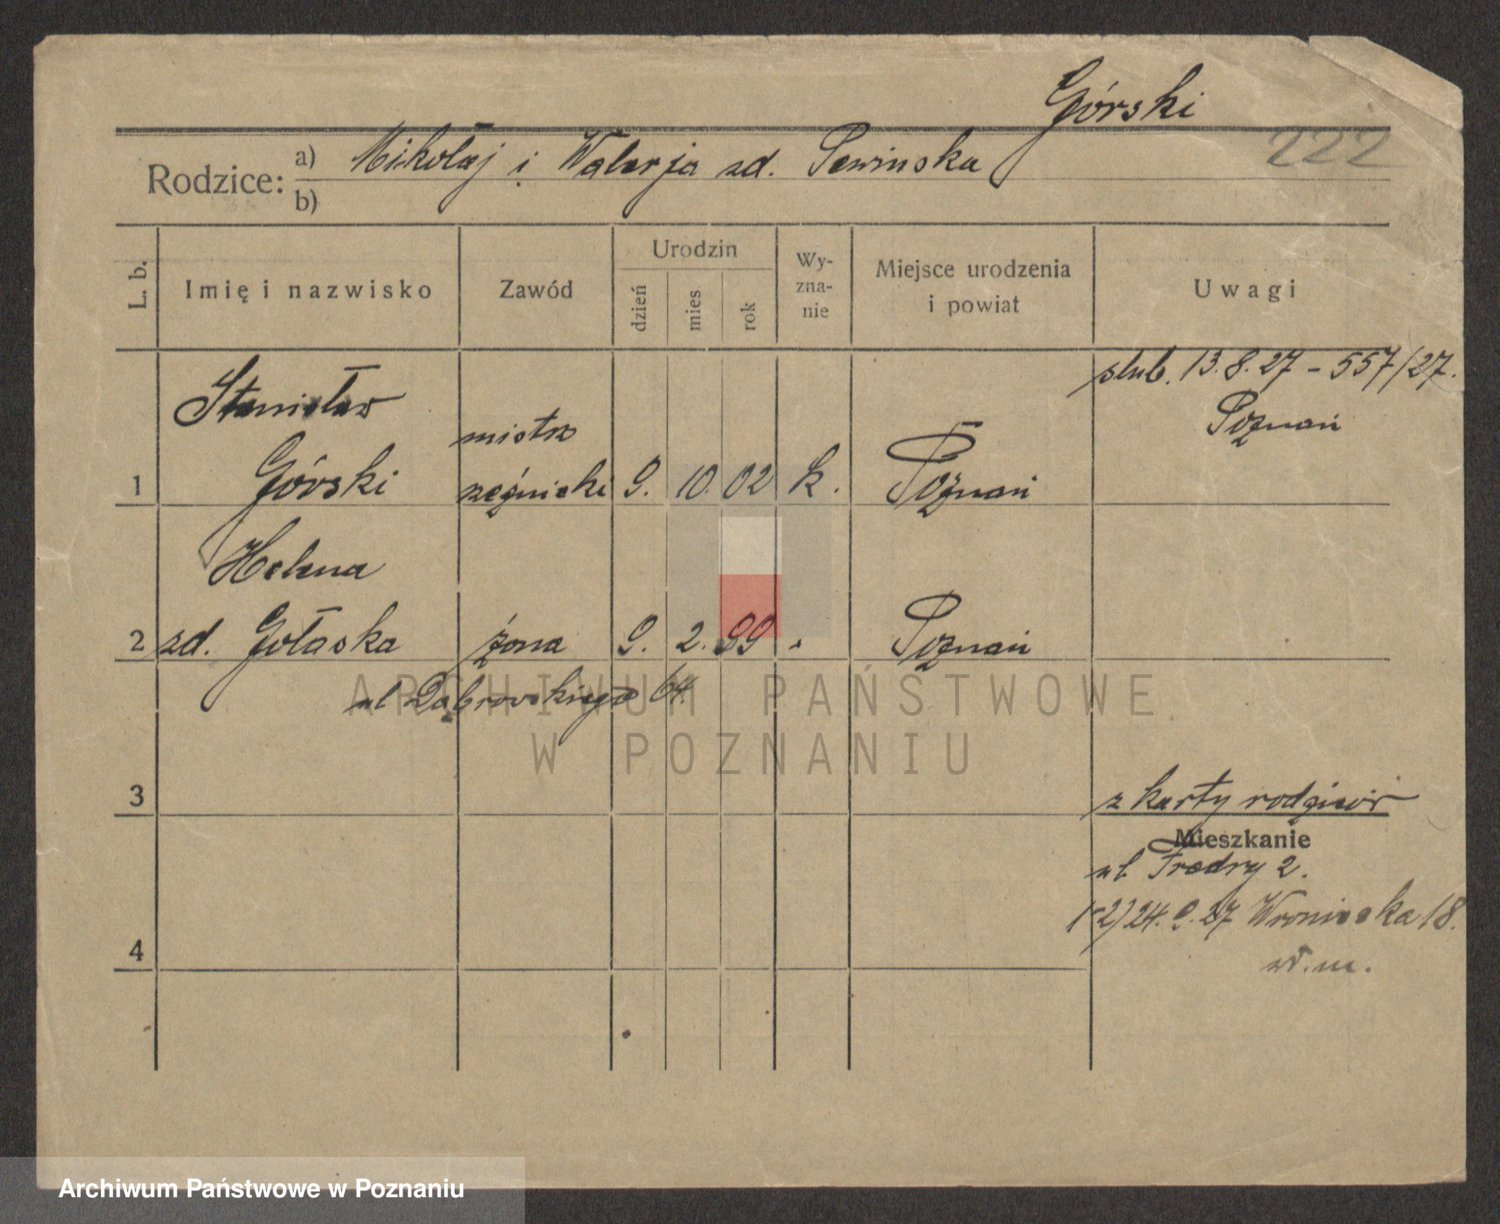 Górski
222
Rodzice:
a) Mikołaj i Walerja zd.
b)
L. b.
Imię i nazwisko
Zawód
Urodzin
dzień
mies.
rok
Wy-
zna-
nie
Miejsce urodzenia
i powiat
Uwagi
ślub. 13.8.27 - 557/27.
Poznań
Stanisław
mistrz
1 Górski rzeźnicki 9. 10. 02 k. Poznań
Helena
2 zd. Gołaska żona 9. 2. 99 " Poznań
ul Dąbrowskiego 64.
ARCHIWUM PAŃSTWOWE
W POZNANIU
3
z karty rodziców
Mieszkanie
ul Fredry 2.
1-2) 24.9.27 Wroniecka 18.
4
wł. m.
Archiwum Państwowe w Poznaniu